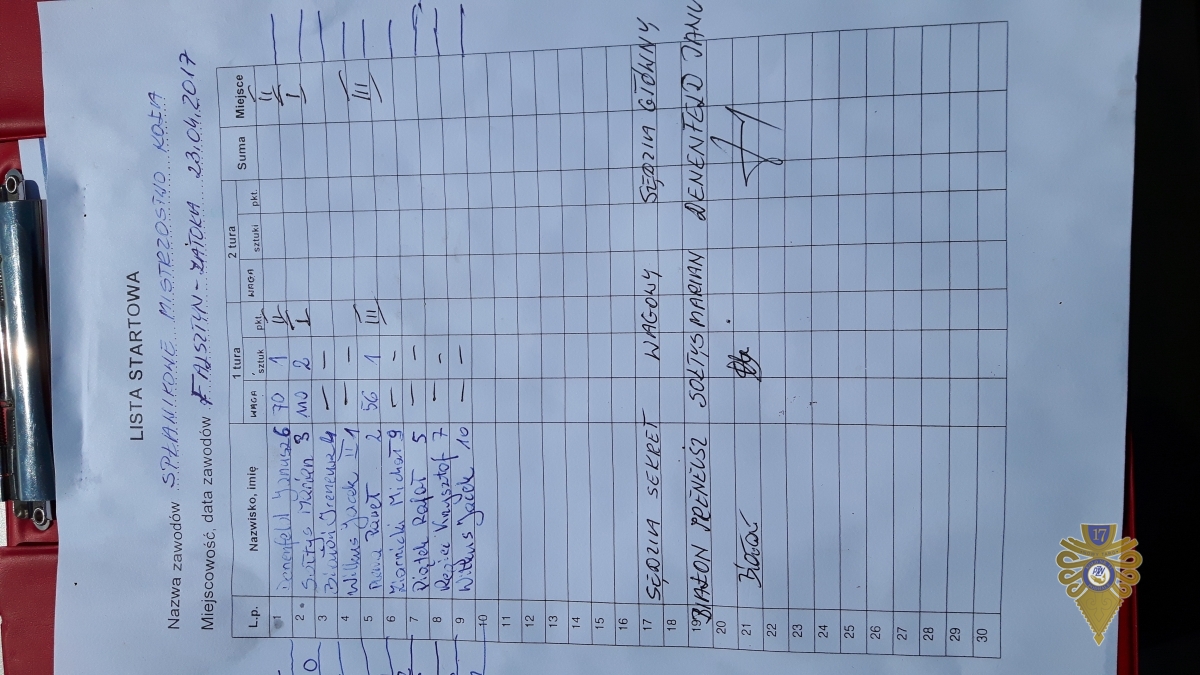 LISTA STARTOWA
Nazwa zawodów SPŁAWIKOWE MISTRZOSTWO KOŁA
Miejscowość, data zawodów FALSZTYN-ZATOKA 23.04.2017
L.p. Nazwisko, imię 1 tura 2 tura Suma Miejsce
WAGA sztuk pkt. WAGA sztuki pkt.
1 Denenfeld Janusz 6 70 1 II II
2 Sołtys Marian 3 110 2 I I
3 Błażoń Ireneusz 4 — —
4 Wilkus Jacek II 1 — —
5 Paweł 2 56 1 III III
6 Michał 9 — —
7 Piątek Rafał 5 — —
8 Krzysztof 7 — —
9 Wilkus Jacek 10 — —
10
11
12
13
14
15
16
17 SĘDZIA SEKRET WAGOWY SĘDZIA GŁÓWNY
18
19 BŁAŻOŃ IRENEUSZ SOŁTYS MARIAN DENENFELD JANU
20
21 Błażoń
22
23
24
25
26
27
28
29
30
17
PZW